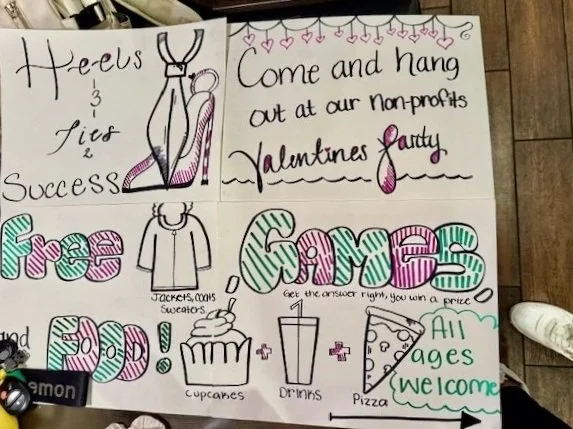 Heels
-3-
Ties
2
Success
Come and hang
out at our non-profits
Valentines Party
Free
Jackets, coats
Sweaters
GAMES
Get the answer right, you win a prize
and FOOD!
Cupcakes
+
Drinks
+
Pizza
All
ages
welcome
emon